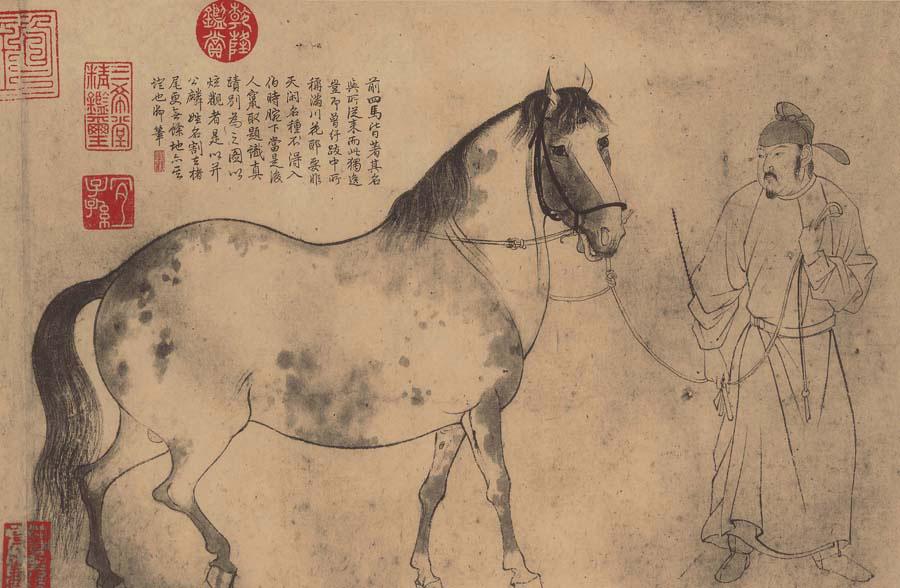 乾隆鑑賞
前四馬皆著其名
與所從來而此獨逸
豈即曾仔跋中所
稱滿川花耶要非
天閑名種不得入
伯時腕下當是後
人竄取題識真
蹟別為之圖以
炫觀者是以并
公麟姓名割去楮
尾更無餘地亦
也御筆
三希堂
精鑑璽
宜
子孫